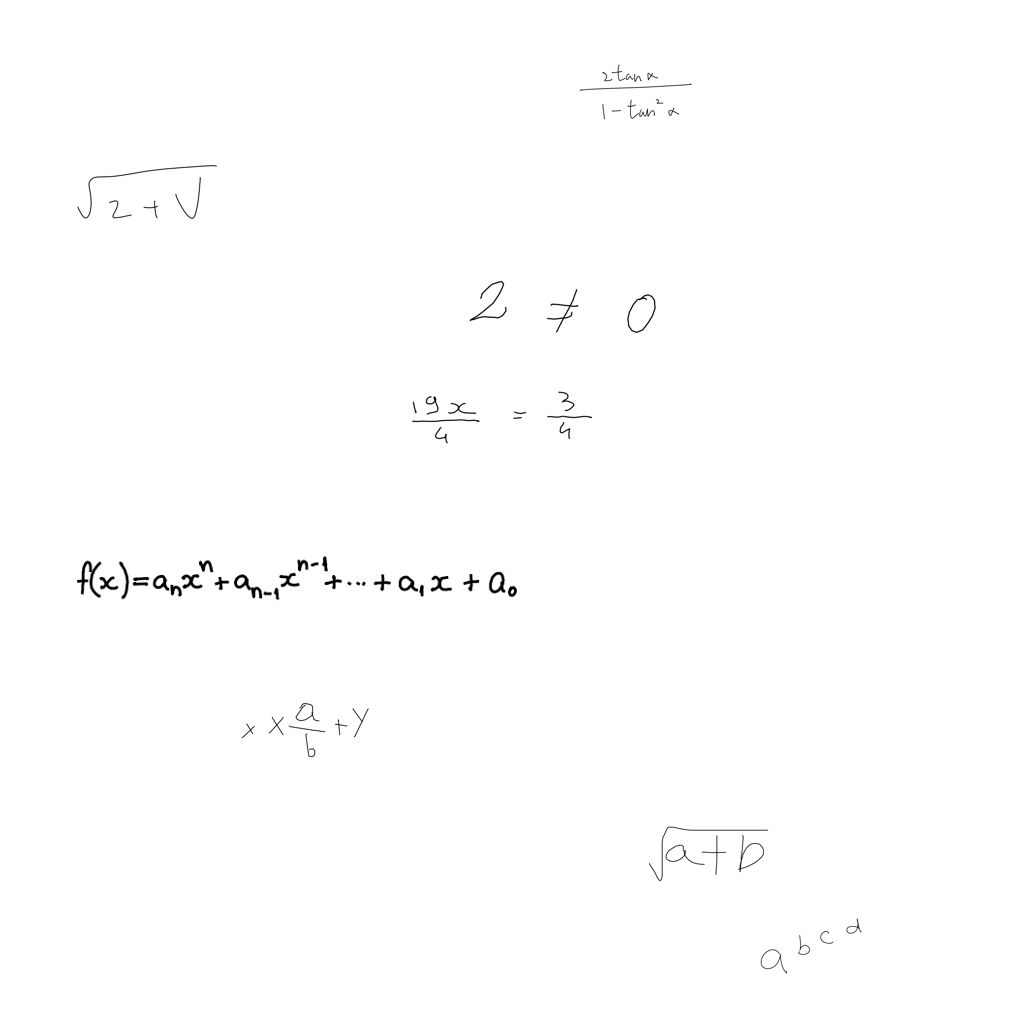 \frac{2 \tan \alpha}{1 - \tan^{2} \alpha}
\sqrt{2 + \sqrt{}}
2 \neq 0
\frac{19x}{4} = \frac{3}{4}
f(x) = a_{n}x^{n} + a_{n-1}x^{n-1} + \cdots + a_{1}x + a_{0}
x \times \frac{a}{b} + y
\sqrt{a + b}
a^{b^{c^{d}}}